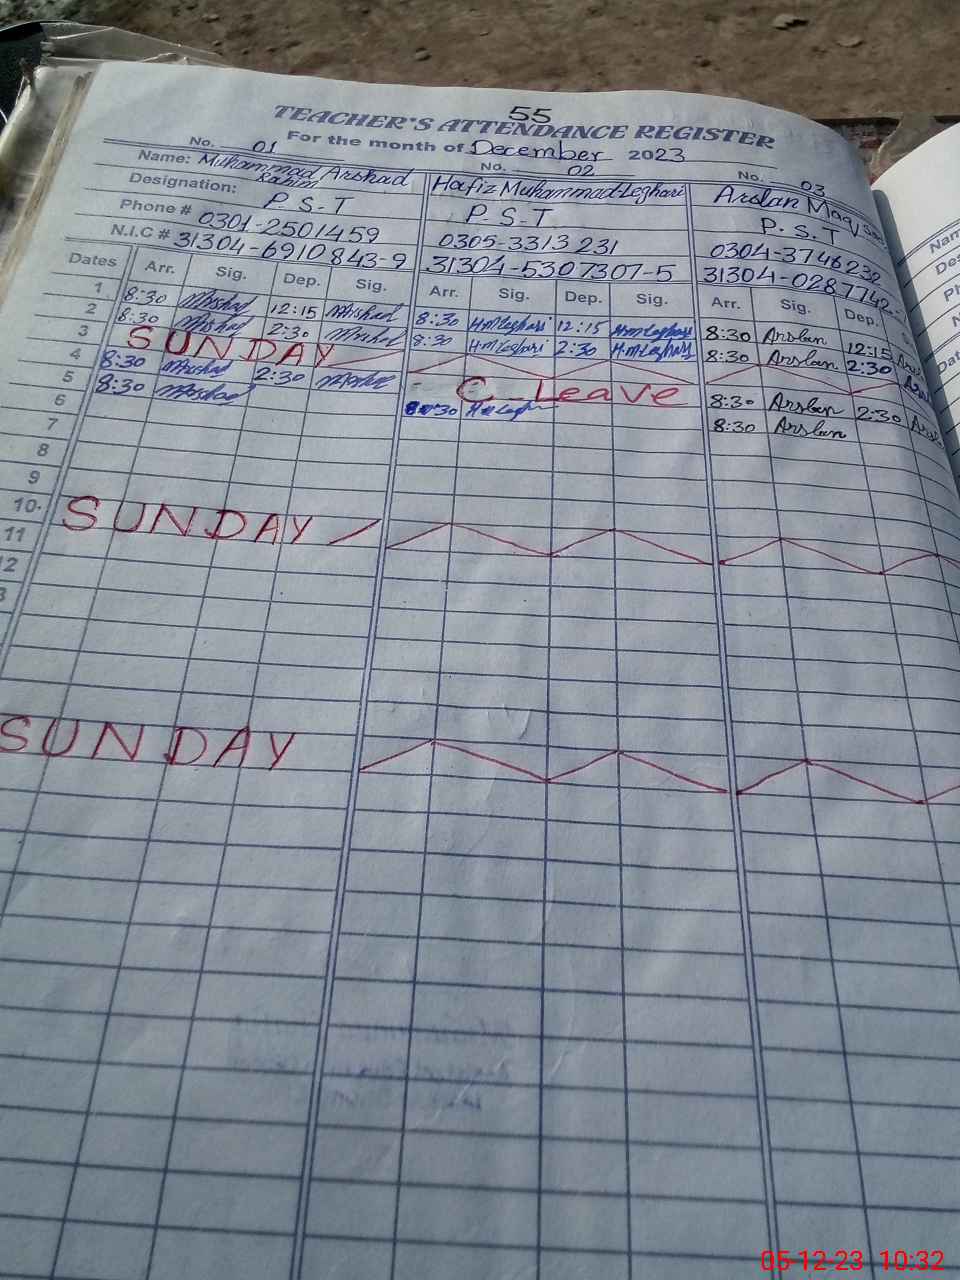 55
TEACHER'S ATTENDANCE REGISTER
For the month of December 2023
No. 01 No. 02 No. 03
Name: Muhammad Arshad Rahim Hafiz Muhammad Leghari Arslan
Designation: P.S.T P.S.T P.S.T
Phone # 0301-2501459 0305-3313231 0304-3746232
N.I.C # 31304-6910843-9 31304-5307307-5 31304-0287742-
Dates Arr. Sig. Dep. Sig. Arr. Sig. Dep. Sig. Arr. Sig. Dep.
1 8:30 Arshad 12:15 Arshad 8:30 H.M Leghari 12:15 H.M Leghari 8:30 Arslan 12:15
2 8:30 Arshad 2:30 Arshad 8:30 H.M Leghari 2:30 H.M Leghari 8:30 Arslan 2:30
3 SUNDAY
4 8:30 Arshad 2:30 Arshad C Leave 8:30 Arslan 2:30
5 8:30 Arshad 8:30 H.M Leghari 8:30 Arslan
6
7
8
9
10 SUNDAY
11
12
3
SUNDAY
05-12-23 10:32